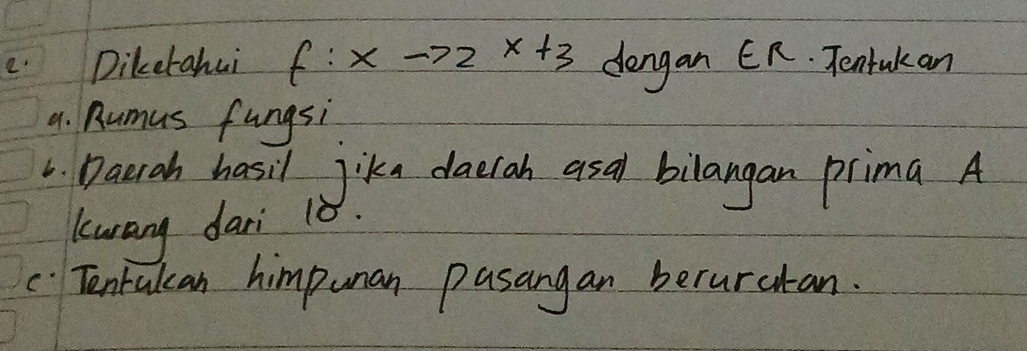 2. Diketahui f : x → 2 x + 3 dengan ER. Tentukan
a. Rumus fungsi
b. Daerah hasil jika daerah asal bilangan prima A
kurang dari 18.
c. Tentukan himpunan pasangan berurutan.